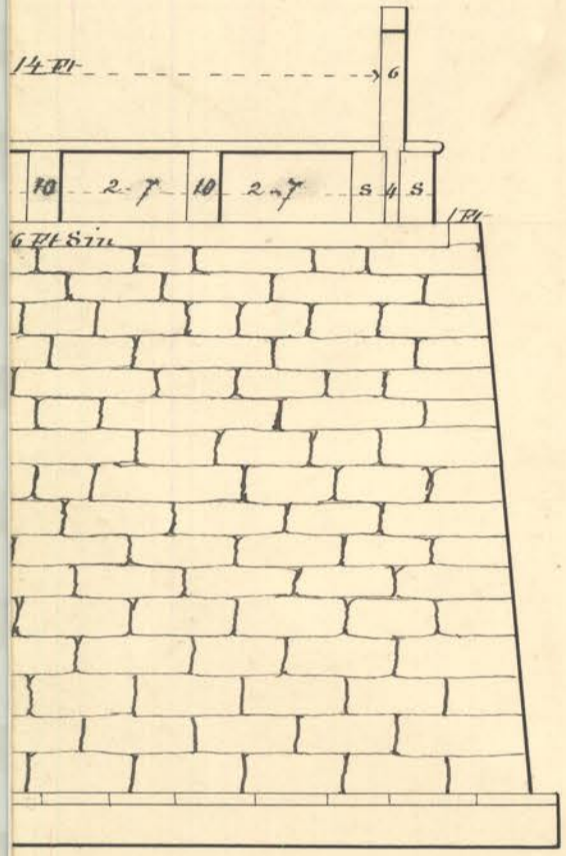 14 Ft 6
10 2-7 10 2-7 S 4 S
1 Ft
6 Ft 8in